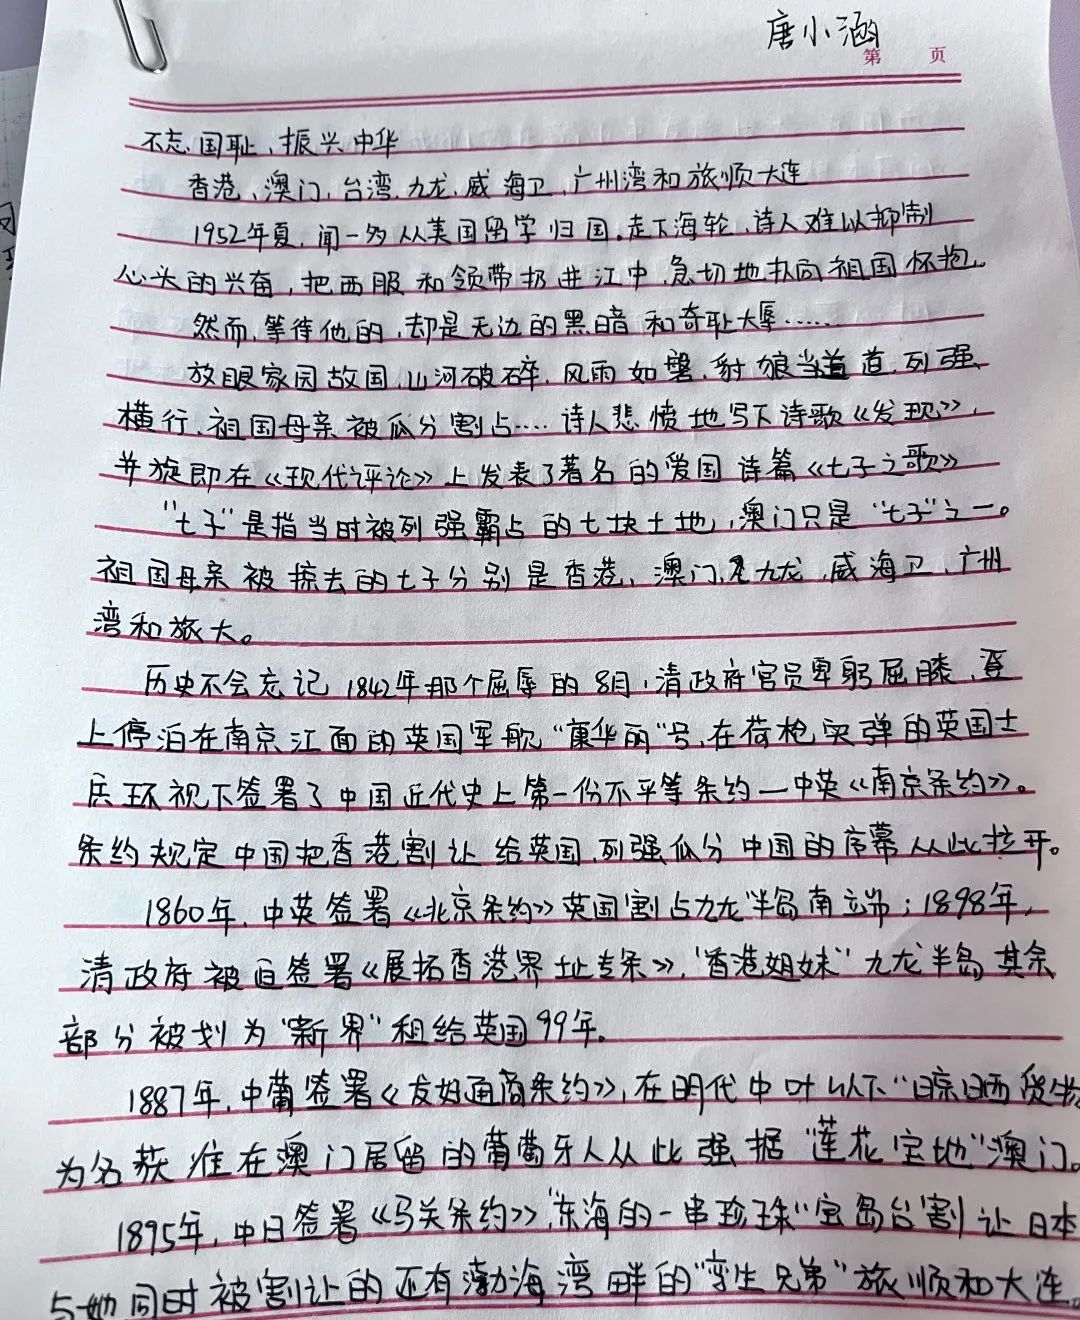 唐小涵
第 页
不忘国耻、振兴中华
香港、澳门、台湾、九龙、威海卫、广州湾和旅顺大连
1952年夏,闻一多从美国留学归国。走下海轮,诗人难以抑制
心头的兴奋,把西服和领带扔进江中,急切地扑向祖国怀抱。
然而,等待他的,却是无边的黑暗和奇耻大辱……
放眼家园故国,山河破碎,风雨如磐,豺狼当道,列强
横行,祖国母亲被瓜分割占……诗人悲愤地写下诗歌《发现》,
并旋即在《现代评论》上发表了著名的爱国诗篇《七子之歌》
“七子”是指当时被列强霸占的七块土地,澳门只是“七子”之一。
祖国母亲被掠去的七子分别是香港、澳门、九龙、威海卫、广州
湾和旅大。
历史不会忘记1842年那个屈辱的8月,清政府官员卑躬屈膝,登
上停泊在南京江面的英国军舰“华丽”号,在荷枪实弹的英国士
兵环视下签署了中国近代史上第一份不平等条约—中英《南京条约》。
条约规定中国把香港割让给英国,列强瓜分中国的序幕从此拉开。
1860年,中英签署《北京条约》英国割占九龙半岛南端;1898年,
清政府被迫签署《展拓香港界址专条》,“香港姐妹”九龙半岛其余
部分被划为“新界”租给英国99年。
1887年,中葡签署《友好通商条约》,在明代中叶以下“晾晒货物
为名获准在澳门居留的葡萄牙人从此强据“莲花宝地”澳门。
1895年,中日签署《马关条约》,“东海的一串珍珠”宝岛台割让日本
与她同时被割让的还有渤海湾畔的“孪生兄弟”旅顺和大连。